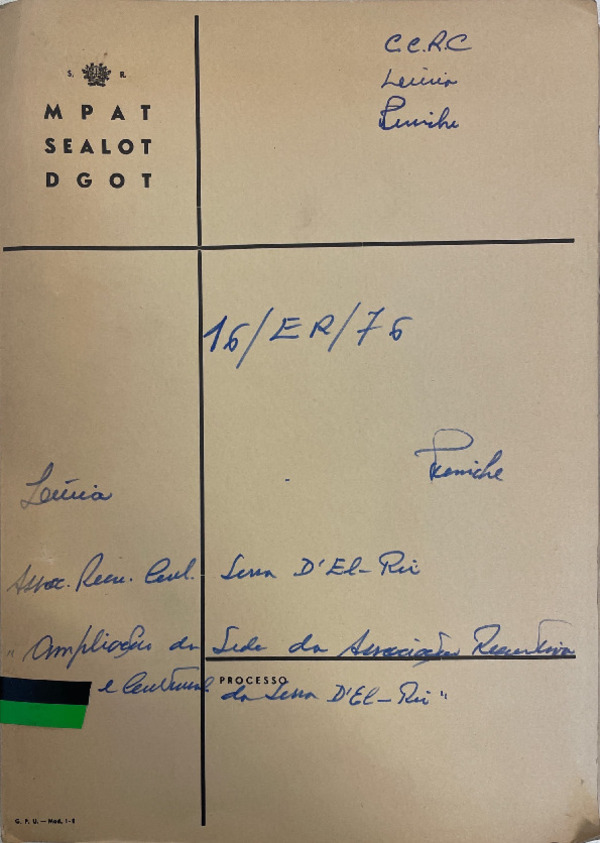 S. R.
MPAT
SEALOT
DGOT
C.C.R.C
Leiria
Peniche
16/ER/76
Peniche
Leiria
Assoc. Recr. Cult. Serra D'El-Rei
"Ampliação da Sede da Associação Recreativa
PROCESSO
e Cultural da Serra D'El-Rei"
G. P. U. — Mod. 1-B